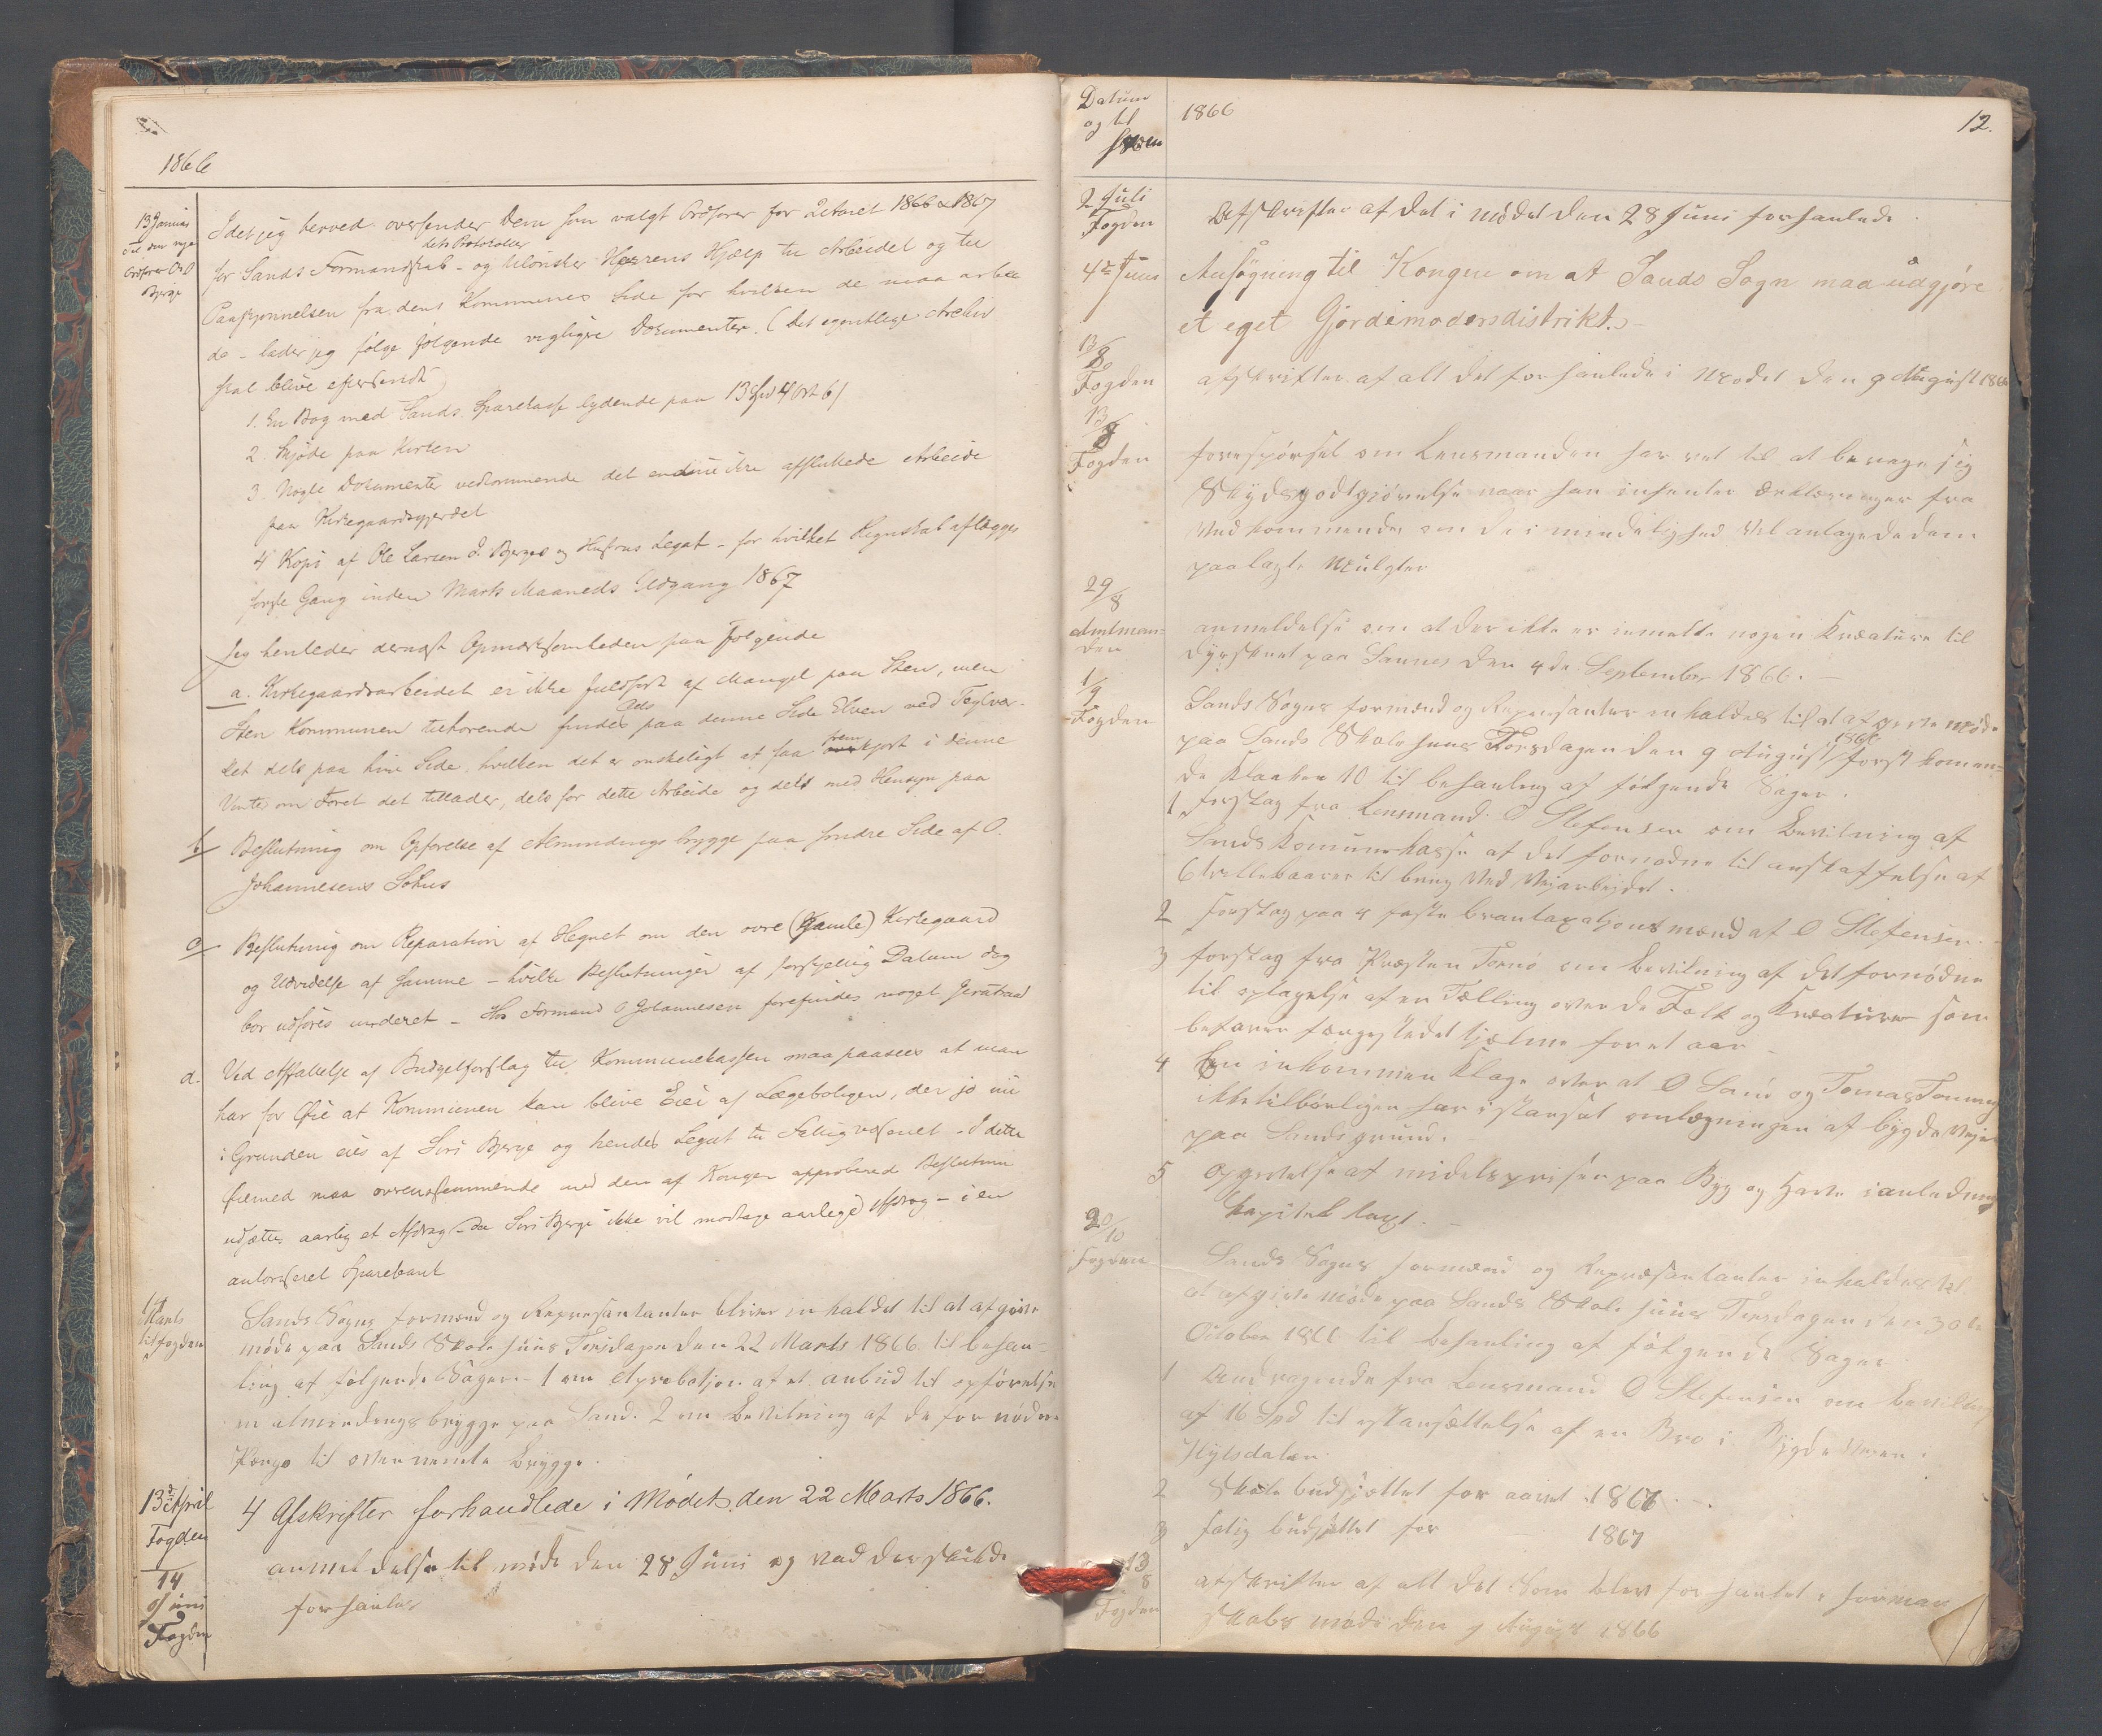 1866
13 Januar
Til den nye
Ordfører O O
Bjerge
Idet jeg herved oversender Dem som valgt Ordfører for 2 Aaret 1866 & 1867
dets Protokoller
for Sands Formandskab - og tilønsker Herrens Hjælp til Arbeidet og til
Paaskjønnelsen fra dens Kommunes Side for hvilken de maa arbei
de - lader jeg følge følgende vigtigere Dokumenter. (Det egentlige Archiv
skal blive eftersendt)
1. En Bog med Sands Sparekasse lydende paa 13 Spd 4 Ort 6 /
2. Skjøde paa Kirken
3. Nogle Dokumenter vedkommende det endnu ikke afsluttede Arbeide
paa Kirkegaardsgjerdet
4 Kopi af Ole Larsen S. Bjerges og Hustrus Legat - for hvilket Regnskab aflægges
første Gang inden Marts Maaneds Udgang 1867
Jeg henleder dernæst Opmærksomheden paa følgende
a. Kirkegaardsarbeidet er ikke fuldført af Mangel paa Sten, men
Sten Kommunen tilhørende findes dels paa denne Side Elven ved Teglver-
ket dels paa hin Side, hvilken det er ønskeligt at faa frem kjørt i denne
Vinter om Føret det tillader, dels for dette Arbeide og dels med Hensyn paa
b/ Beslutning om Opførelse af Almindings brygge paa søndre Side af O.
Johannesens Søhus
c/ Beslutning om Reparation af Hegnet om den øvre (Gamle) Kirkegaard
og Udvidelse af samme - hvilke Beslutninger af forskjellig Datum dog
bør udføres underet - Hos Formand O Johannesen forefindes noget
d. Ved Affattelse af Budgetforslag til Kommunekassen maa paasees at man
har for Øie at Kommunen kan blive Eier af Lægeboligen, der jo nu
i Grunden eies af Siri Bjerge og hendes Legat til Fattigvæsenet - I dette
Øiemed maa overensstemmende med den af Kongen approberede Beslutning
udsættes aarlig et Afdrag - da Siri Bjerge ikke vil modtage aarlige Afdrag - i en
autoriseret Sparebank
14
Marts
til fogden
Sands Sogns formænd og Repræsentanter bliver inkaldet til at afgive
møde paa Sands Skole huus Torsdagen den 22 Marts 1866 til behan-
ling af følgende Sager. - 1 om Aprobatjon af et anbud til opførelse
en almindings brygge paa Sand. 2 om Bevilning af de fornødne
Penge til ovennevnte Brygge.
13de April
Fogden
4 Afskrifter forhandlede i Mødet den 22 Marts 1866.
14
Juni
Fogden
anmeldelse til møde den 28 Juni og vad der skulde
forhanles
Datum
og til
hvem
1866
12.
2 Juli
Fogden
Afskrifter af det i mødet den 28 Juni forhanlede
4de Juni
Ansøgning til Kongen om at Sands Sogn maa udgjøre
et eget Gjordemodersdistrikt.
13/8
Fogden
afskrifter af alt det forhanlede i Mødet den 9 August 1866
13/8
Fogden
forespørsel om Lensmanden har ret til at berege sig
Skydsgodtgjørelse naar han inhenter Ærklæringer fra
Vedkommende om de i mindelighed vil antage de dem
paalagte Mulgter
29/8
Amtman-
den
anmeldelse om at der ikke er inmelte nogen Kreature til
dyrskuet paa Sannes den 4de September 1866.
1/9
Fogden
Sands Sogns formænd og Repræsentanter inkaldes til at afgive møde
paa Sands Skolehuus Torsdagen den 9 August 1866 først komen-
de Klokken 10 til behanling af følgende Sager.
1 forslag fra Lensmand O Stefensen om Bevilning af
Sands Komunekasse af det fornødne til anskaffelse af
6 trillebaarer til brug ved Vejarbejdet.
2 forslag paa 4 faste brantaxatjons mænd af O Stefensen.
3 forslag fra Præsten Tornø om Bevilning af det fornødne
til optagelse af en Tælling over de Folk og Kreature som
befarer færgestedet Hjelme for et aar
4 En inkommen Klage over at O Sand og Tomas
ikke tilbørligen har istansat omlægningen af bygdeveje
paa Sandsgrund.
5 opgivelse af midelspriser paa Byg og Havre i anledning
Kapitelstaxt.
20/10
Fogden
Sands Sogns formænd og Repræsantanter inkaldes til
at afgive møde paa Sands Skole huus Torsdagen den 30te
October 1866 til Behanling af følgende Sager
1 Andragende fra Lensmand O Stefensen om Bevilling
af 16 Spd til istansættelse af en Bro i Bygdeveien.
Hylsdalen
2 Skole budsjættet for aaret 1866.
3 fatig budsjættet for 1867
13/8
Fogden
afskrifter af alt det Som blev forhanlet i forman
skabs møde den 9 August 1866